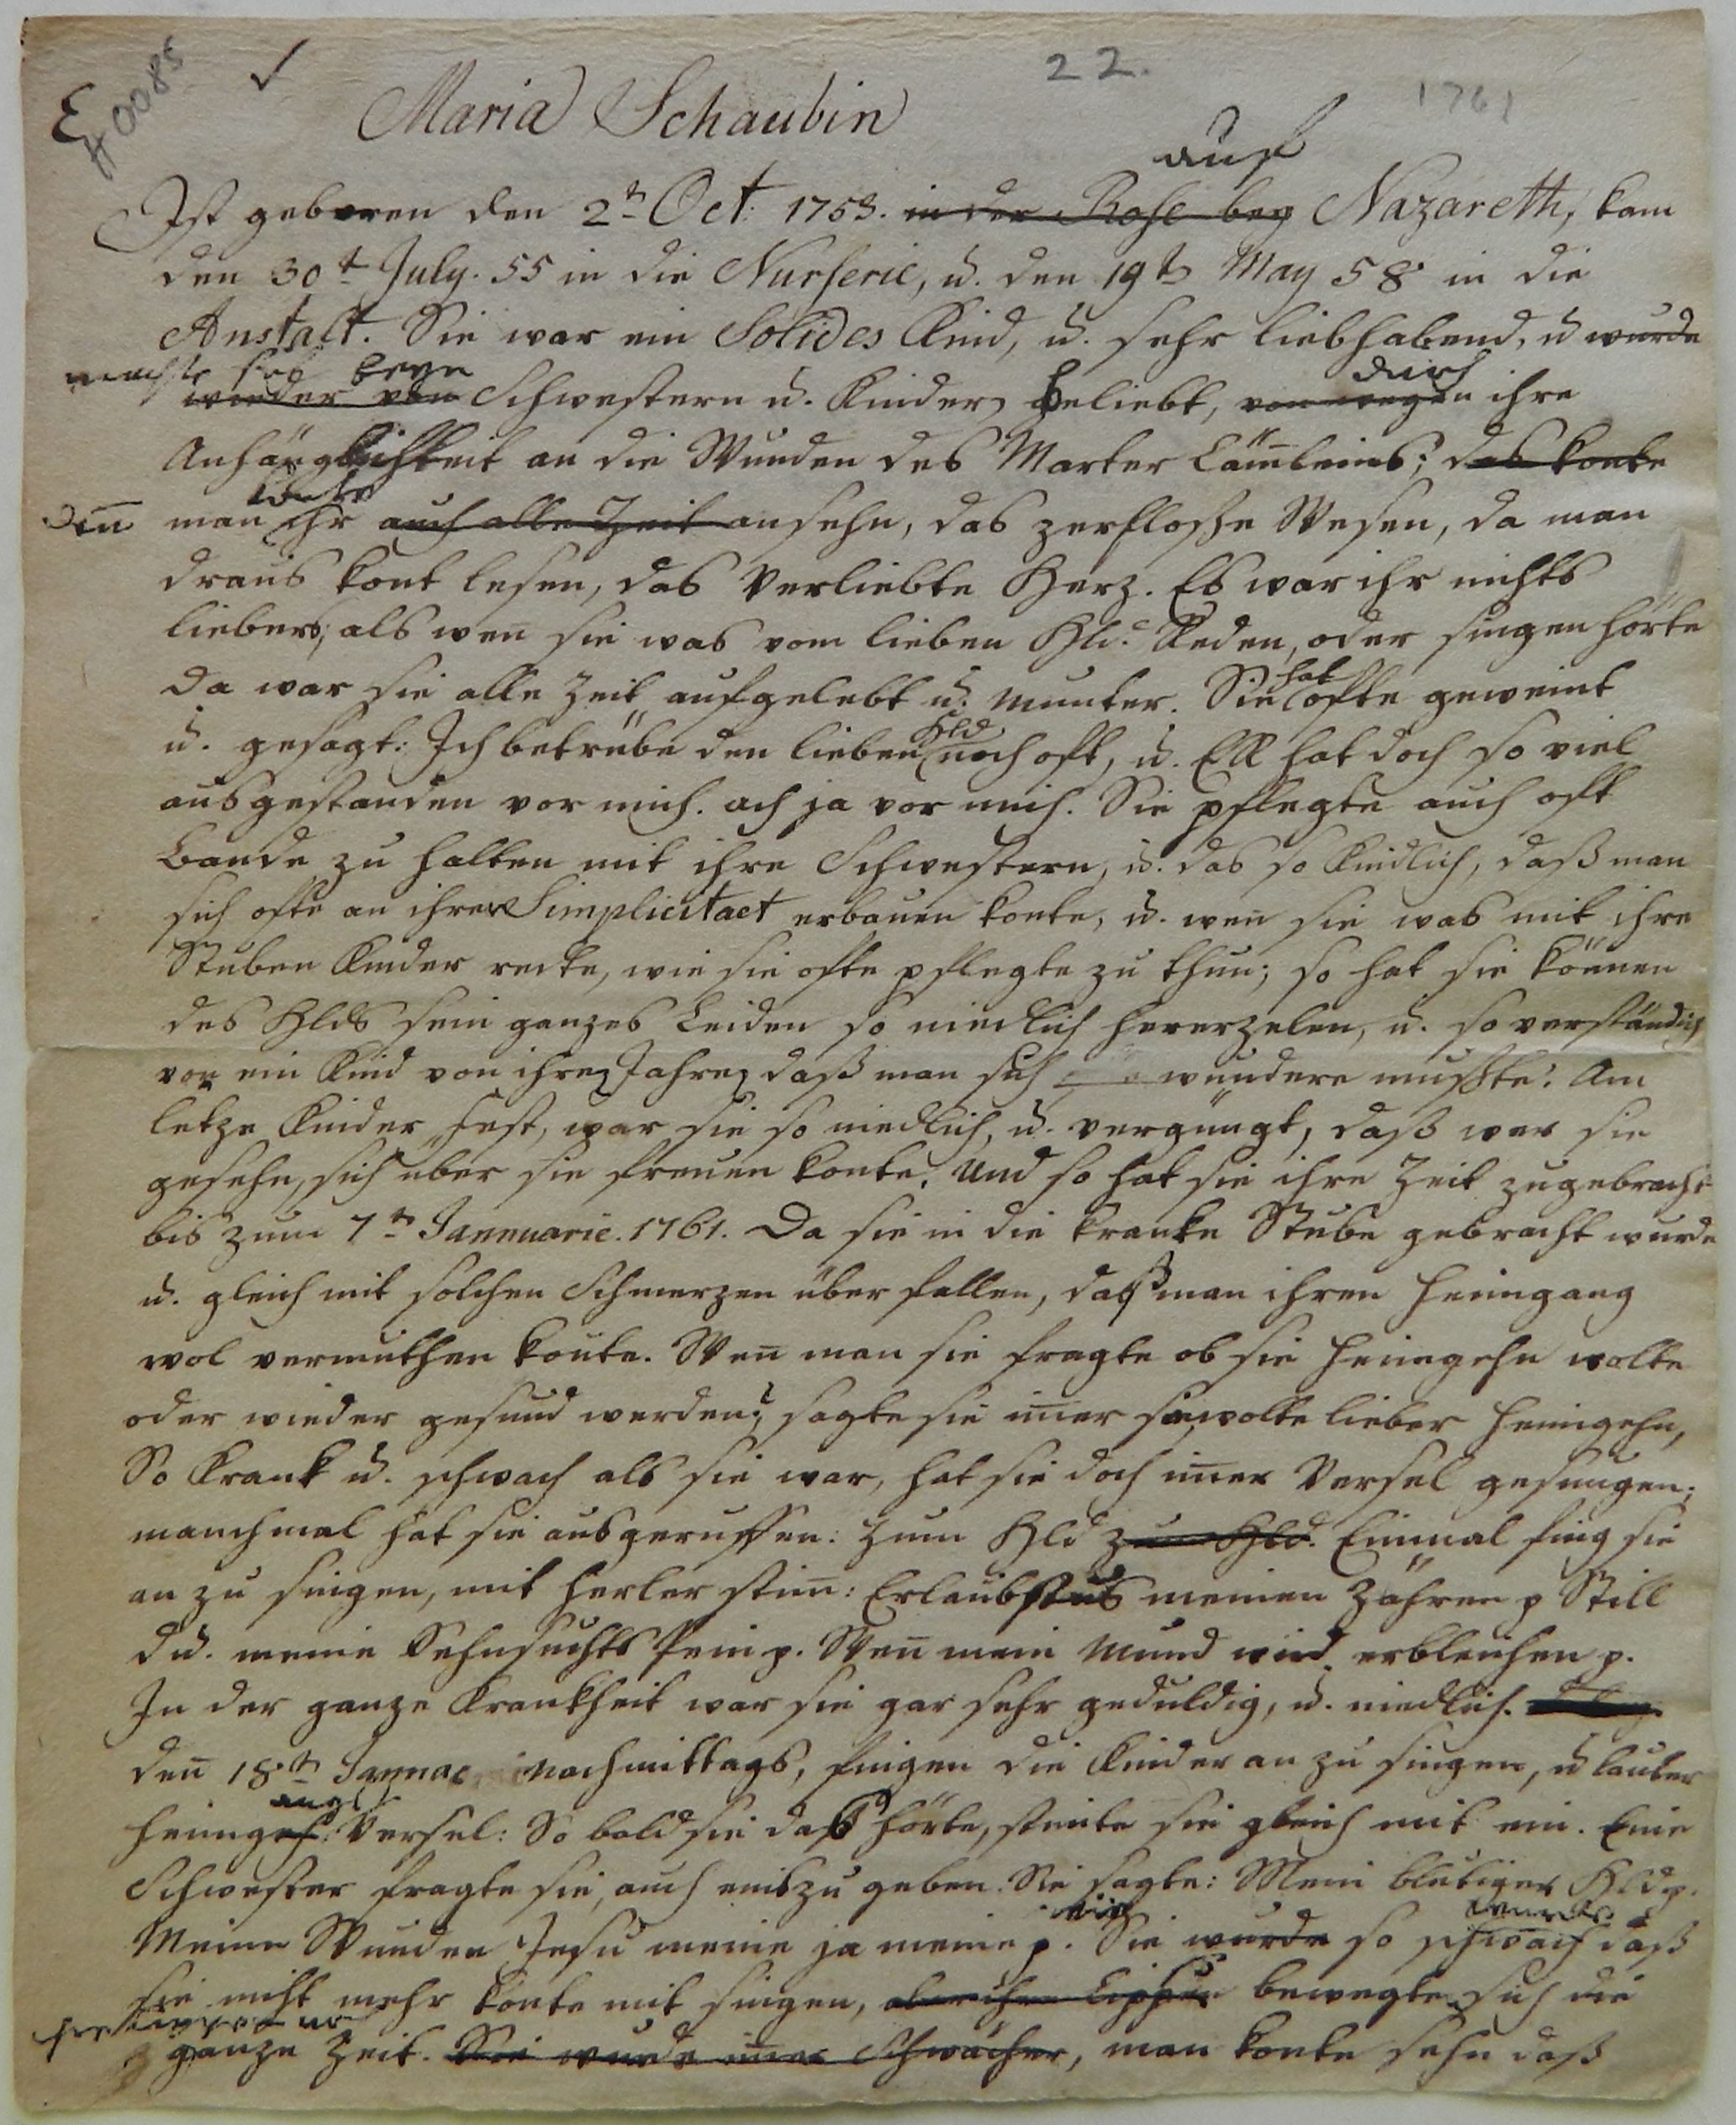 E
# 0085
22.
1761
Maria Schaubin
auf
Ist geboren den 2tn Oct: 1753. in der Rose bey Nazareth, kam
den 30t July. 55 in die Nurserie, u. den 19t May 58 in die
Anstalt. Sie war ein Solides Kind, u. sehr liebhabend, u wurde
machte sich beyn durch
wieder von Schwestern u. Kinder beliebt, von wegen ihre
Anhänglichkeit an die Wunden des Marter Lämleins; das konte
den man konte ihr auch alle Zeit ansehn, das zerfloßne Wesen, da man
draus kont lesen, das Verliebte Herz. Es war ihr nichts
liebers, als wen sie was vom lieben Hld. Reden, oder singen hörte
da war sie alle Zeit aufgelebt u. munter. Sie hat ofte geweint
u. gesagt: Ich betrübe den lieben Hld noch oft, u. Er hat doch so viel
ausgestanden vor mich. ach ja vor mich. Sie pflegte auch oft
Bande zu halten mit ihre Schwestern, u. das so kindlich, daß man
sich ofte an ihrer Simplicitaet erbauen konte, u. wen sie was mit ihre
Stuben Kinder redte, wie sie ofte pflegte zu thun; so hat sie können
des Hlds sein ganzes Leiden so niedlich hererzelen, u. so verständich
vor ein Kind von ihre Jahre, daß man sich wundere mußte. Am
letze Kinder Fest, war sie so niedlich, u. vergnügt, daß wer sie
gesehn, sich uber sie freuen konte. Und so hat sie ihre Zeit zugebracht
bis zum 7tn Jannuarie. 1761. Da sie in die kranke Stube gebracht wurde
u. gleich mit solchen Schmerzen über fallen, daß man ihren Heimgang
wol vermuthen konte. Wen man sie fragte ob sie heimgehn wolte
oder wieder gesund werden? sagte sie imer sie wolte lieber heimgehn,
So krank u. schwach als sie war, hat sie doch imer Versel gesungen;
manchmal hat sie ausgeruffen: Zum Hld zum Hld. Einmal fing sie
an zu singen, mit herler stim: Erlaubstus meinen Zähren p Still
du. meine Sehnsuchts Pein p. Wen mein Mund wird erbleichen p.
In der ganze Krankheit war sie gar sehr geduldig, u. niedlich.
den 18tn Januar nachmittags, fingen die Kinder an zu singen, u lauter
heimgangs Versel: So bald sie daß hörte, stimte sie gleich mit ein. Eine
Schwester fragte sie, auch eins zu geben. Sie sagte: Mein blutiger Hld p.
Meine Wunden Jesu meine ja meine p. Sie wurde so schwach wurde daß
sie nicht mehr konte mit singen, aber ihre Lippen bewegte sich die
ganze Zeit. Sie wurde imer schwächer, man konte sehn daß